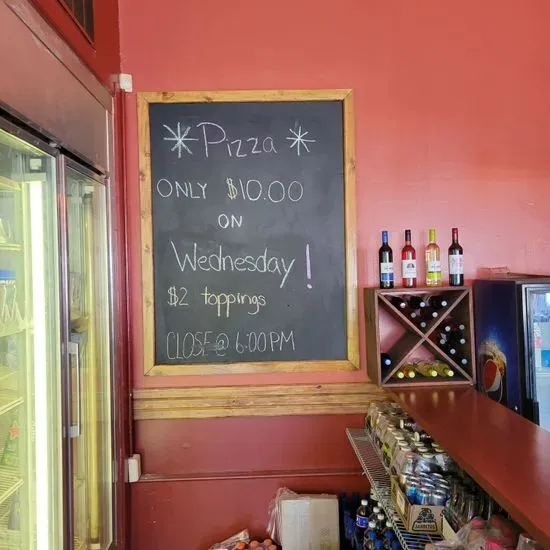 * Pizza *
ONLY $10.00
ON
Wednesday!
$2 toppings
CLOSE @ 6:00PM
JARRITOS